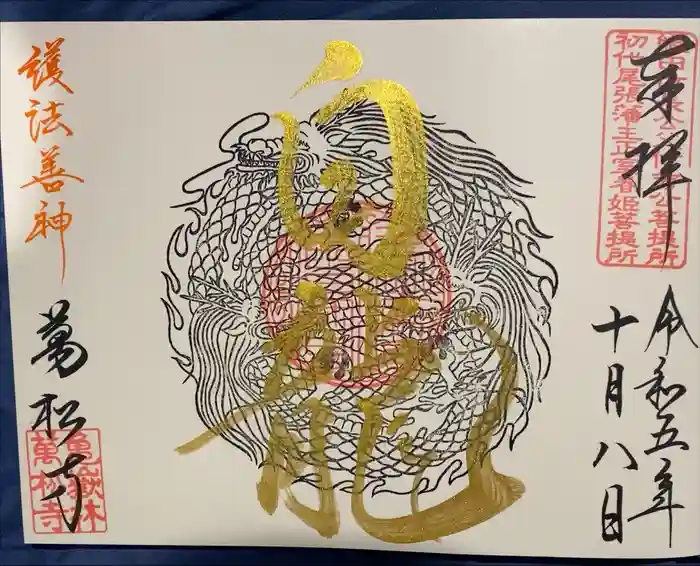 奉拝
公菩提所
初代尾張藩主正室春姫菩提所
令和五年
十月八日
白龍
護法善神
萬松寺
亀嶽林
萬松寺